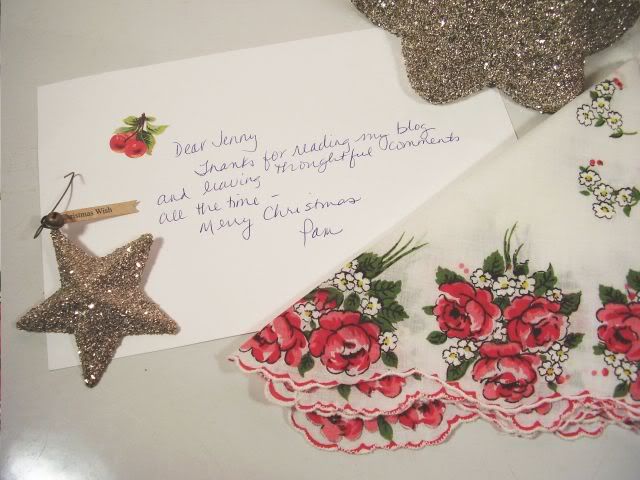 Dear Jenny
Thanks for reading my blog
and leaving thoughtful comments
all the time –
Merry Christmas
Pam
Christmas Wish